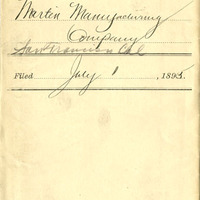 Martin Manufacturing
Company
San Francisco Cal
Filed July 1, 1895.